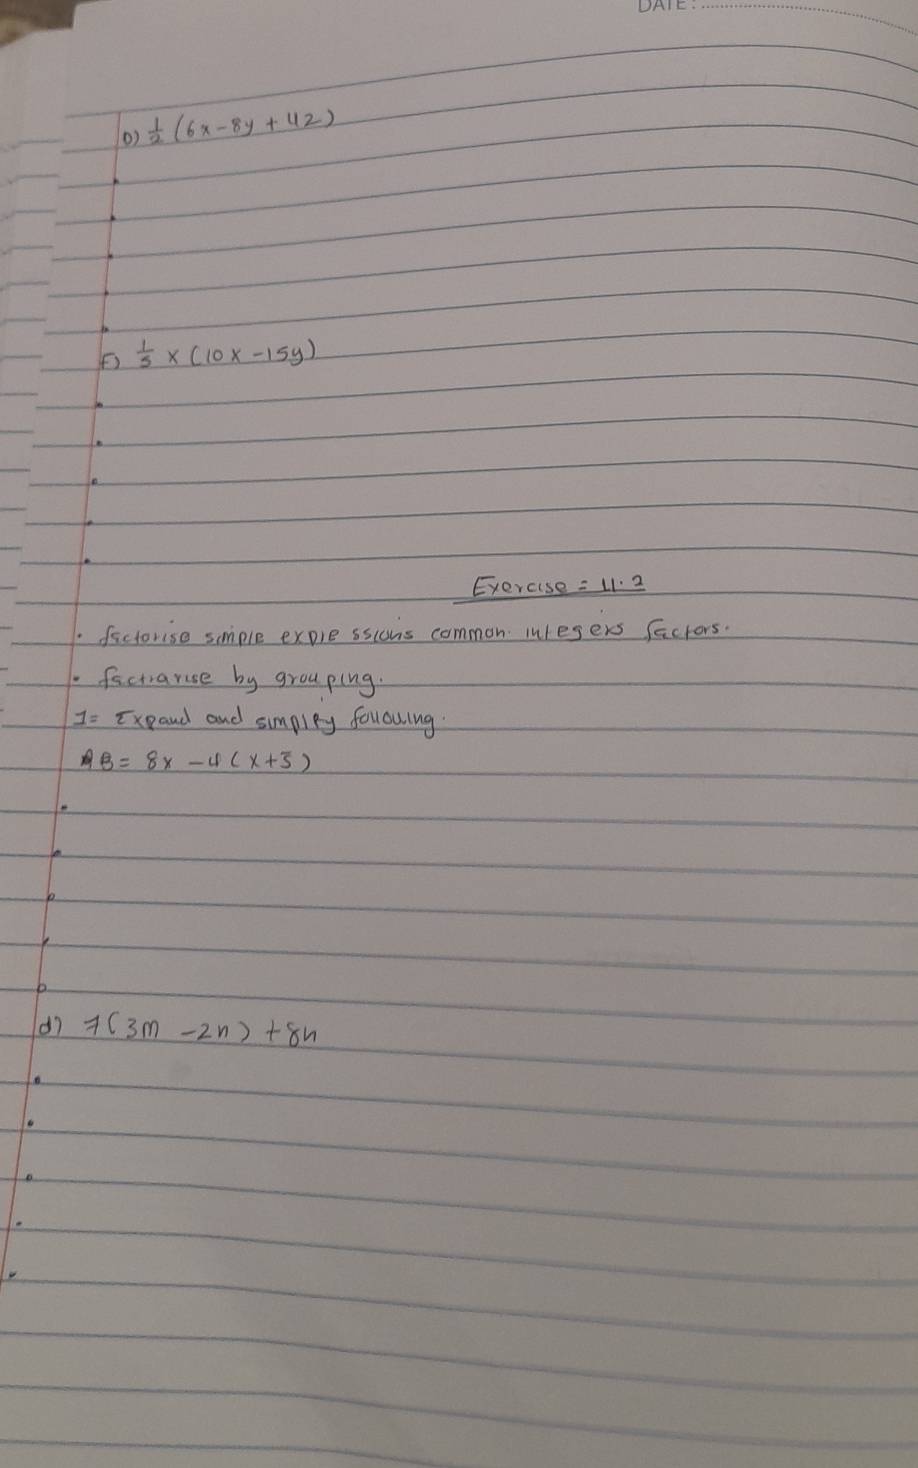 DATE:
D) 1/2 (6x-8y+4z)
F) 1/5 x (10x-15y)
Exercise = 11.2
. factorise simple expressions common integers factors.
. factrarise by grouping.
1= Expand and simplify following.
B= 8x -4(x+3)
d) 7(3m -2n) +8n